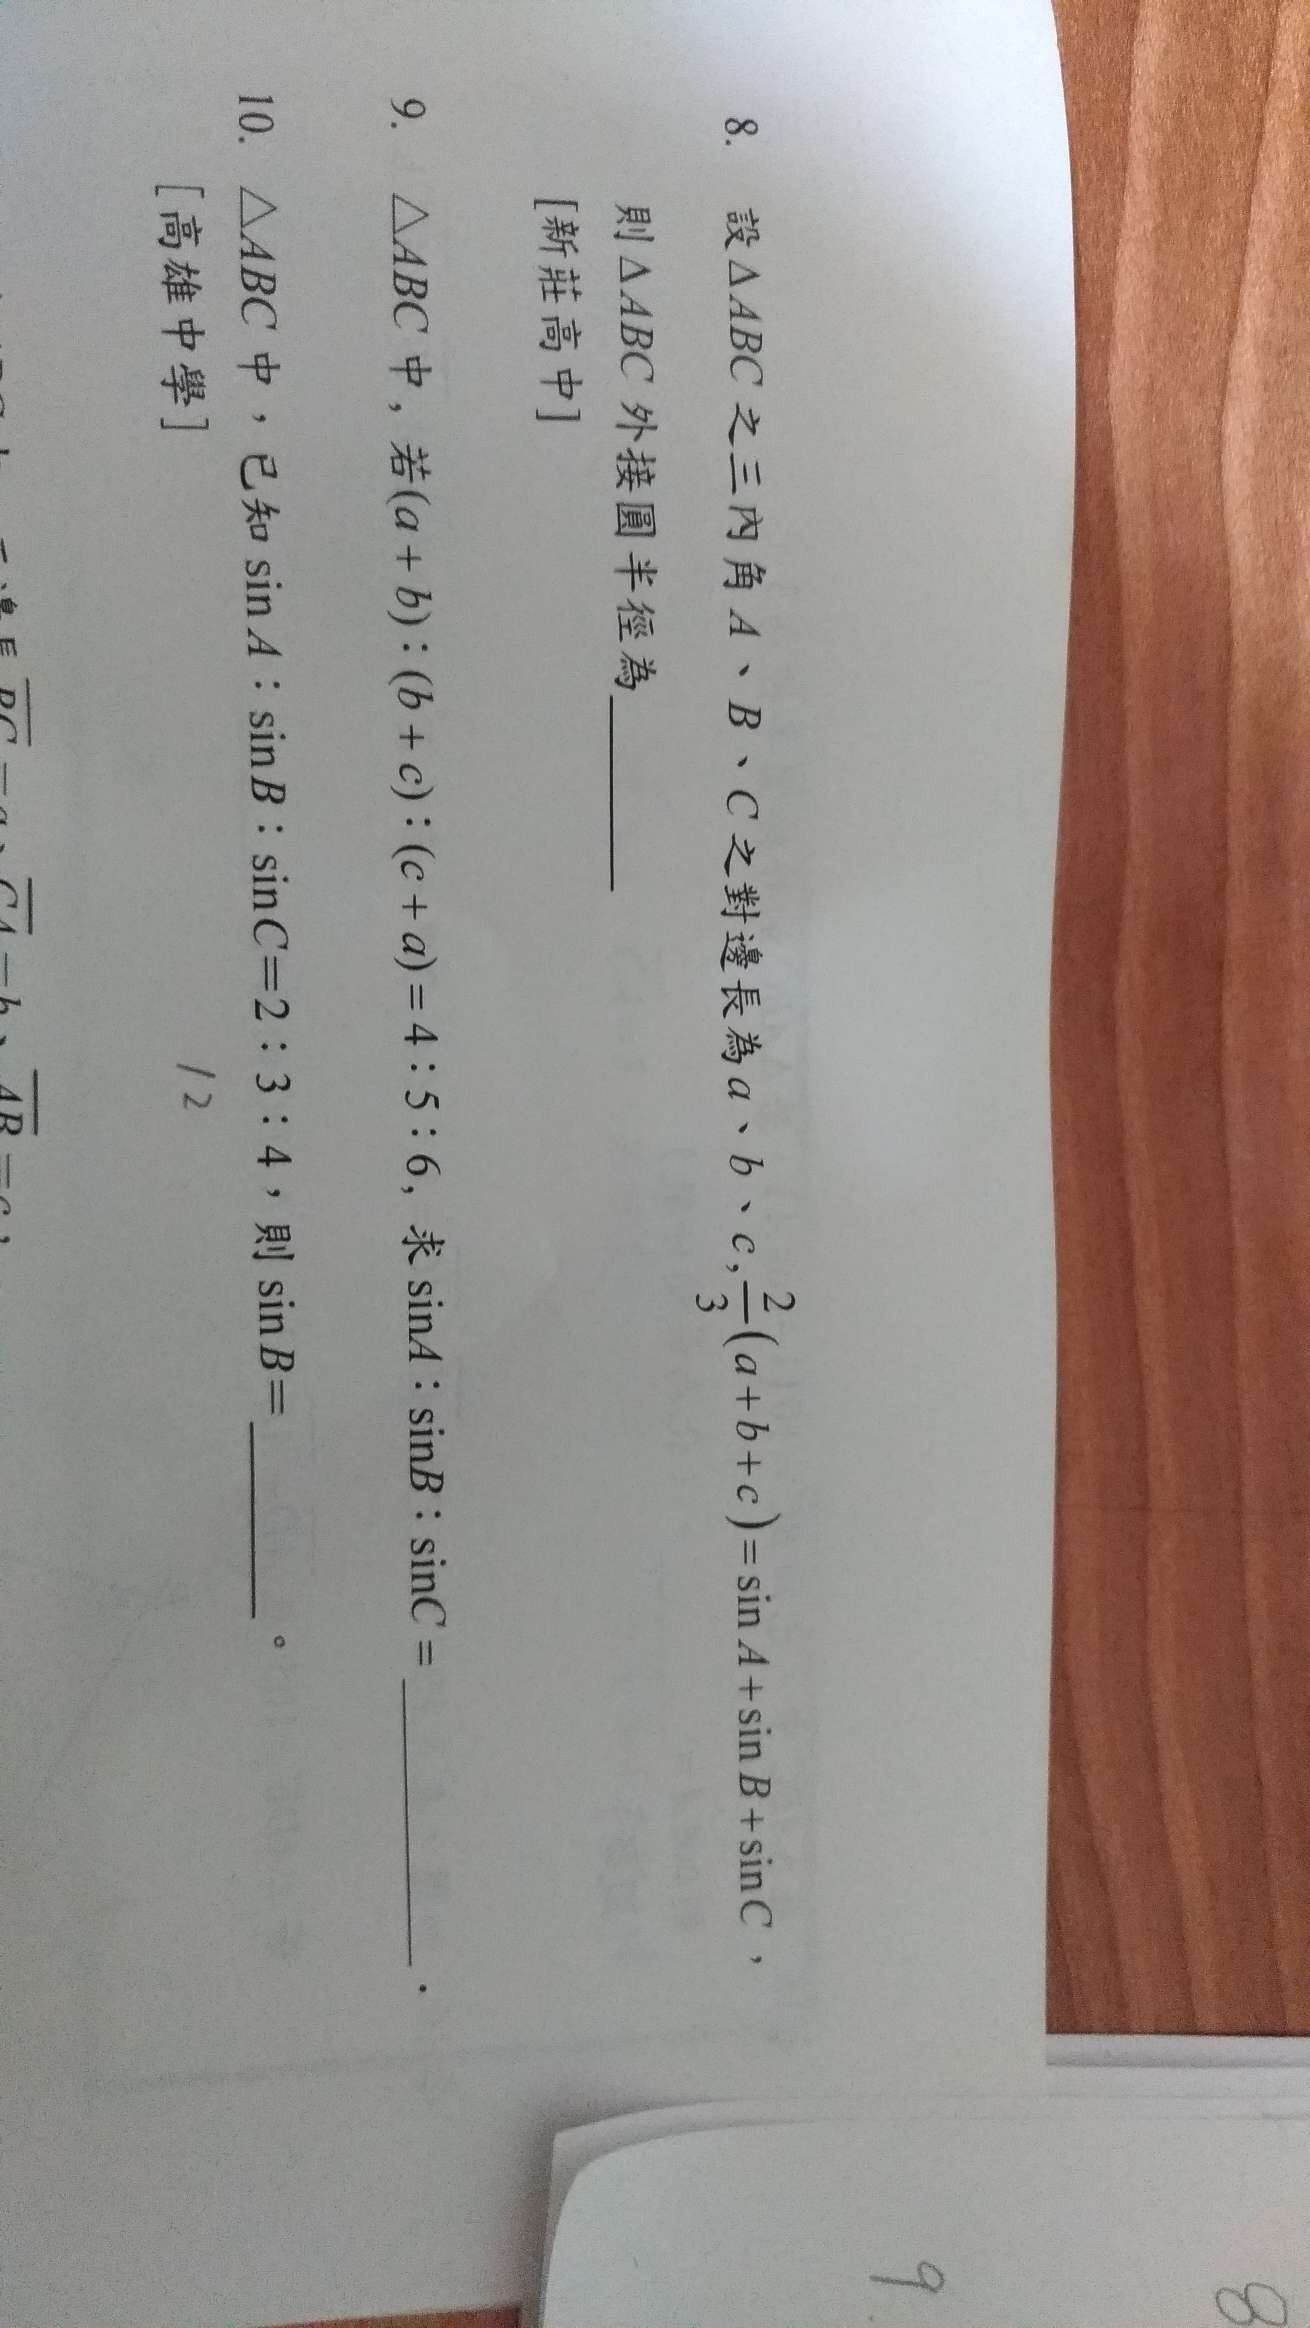 8. 設△ABC之三內角A、B、C之對邊長為a、b、c,\frac{2}{3}(a+b+c)=sin A+sin B+sin C,
則△ABC外接圓半徑為______
[新莊高中]
9. △ABC中, 若(a+b):(b+c):(c+a)=4:5:6, 求sinA:sinB:sinC=________.
10. △ABC中,已知sin A:sin B:sin C=2:3:4,則sin B=______。
[高雄中學]
12
8
9